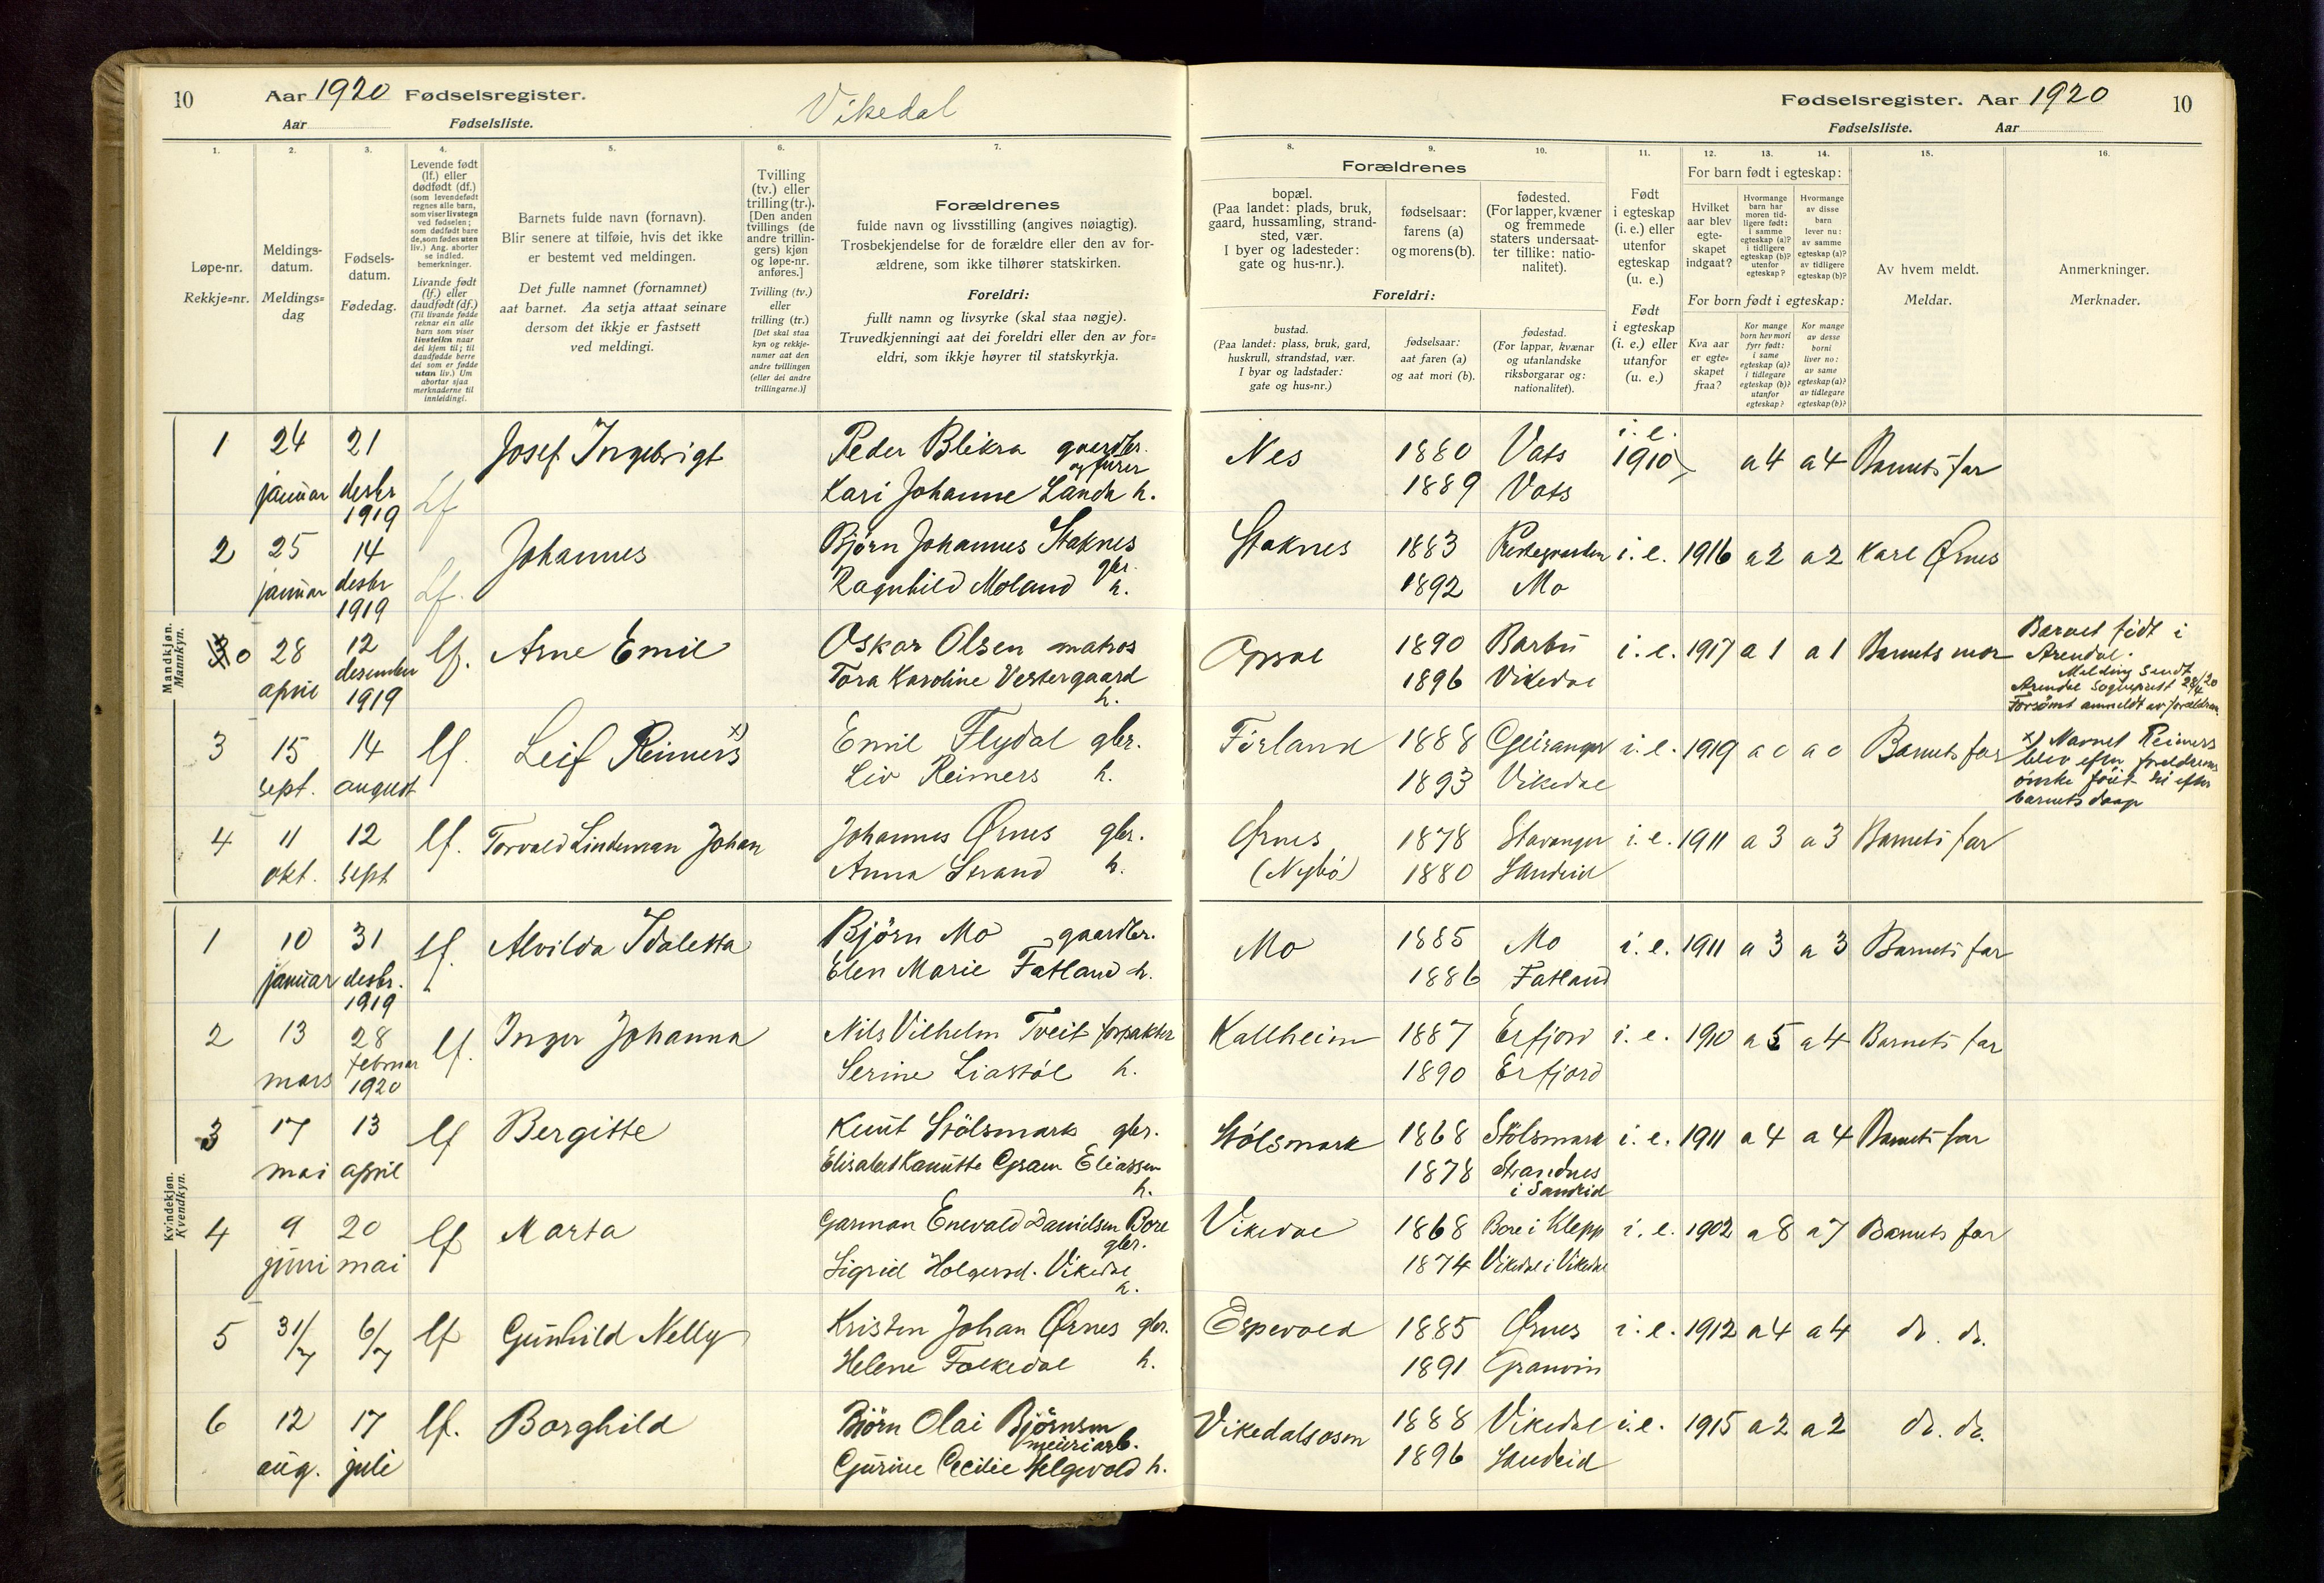 10 Aar 1920 Fødselsregister.
Aar Fødselsliste.
Vikedal
Fødselsregister. Aar 1920 10
Fødselsliste. Aar
1. 2. 3. 4. 5. 6. 7. 8. 9. 10. 11. 12. 13. 14. 15. 16.
Løpe-nr.
Rekkje=nr.
Meldings-
datum.
Meldings=
dag
Fødsels-
datum.
Fødedag.
Levende født
(lf.) eller
dødfødt (df.)
(som levendefødt
regnes alle barn,
som viser livstegn
ved fødselen;
som dødfødt bare
de, som fødes uten
liv.) Ang. aborter
se indled.
bemerkninger.
Livande født
(lf.) eller
daudfødt (df.)
(Til livande fødde
reknar ein alle
barn som viser
livsteikn naar
dei kjem til; til
daudfødde berre
dei som er fødde
utan liv.) Um
abortar sjaa
merknaderne til
innleidingi.
Barnets fulde navn (fornavn).
Blir senere at tilføie, hvis det ikke
er bestemt ved meldingen.
Det fulle namnet (fornamnet)
aat barnet. Aa setja attaat seinare
dersom det ikkje er fastsett
ved meldingi.
Tvilling
(tv.) eller
trilling (tr.).
[Den anden
tvillings (de
andre trillin-
gers) kjøn
og løpe-nr.
anføres.]
Tvilling (tv.)
eller
trilling (tr.)
[Det skal staa
kyn og rekkje-
numer aat den
andre tvillingen
(eller dei andre
trillingarne.)]
Forældrenes
fulde navn og livsstilling (angives nøiagtig).
Trosbekjendelse for de forældre eller den av for-
ældrene, som ikke tilhører statskirken.
Foreldri:
fullt namn og livsyrke (skal staa nøgje).
Truvedkjenningi aat dei foreldri eller den av for=
eldri, som ikkje høyrer til statskyrkja.
Forældrenes
bopæl.
(Paa landet: plads, bruk,
gaard, hussamling, strand-
sted, vær.
I byer og ladesteder:
gate og hus-nr.).
fødselsaar:
farens (a)
og morens (b).
fødested.
(For lapper, kvæner
og fremmede
staters undersaat-
ter tillike: natio-
nalitet).
Foreldri:
bustad.
(Paa landet: plass, bruk, gard,
huskrull, strandstad, vær.
I byar og ladstader:
gate og hus=nr.)
fødselsaar:
aat faren (a)
og aat mori (b).
fødestad.
(For lappar, kvænar
og utanlandske
riksborgarar og:
nationalitet).
Født
i egteskap
(i. e.) eller
utenfor
egteskap
(u. e.)
Født
i egteskap
(i. e.) eller
utanfor
(u. e.)
For barn født i egteskap:
Hvilket
aar blev
egte-
skapet
indgaat?
Hvormange
barn har
moren tid-
ligere født:
i samme
egteskap (a)?
i tidligere
egteskap (b)?
utenfor
egteskap?
Hvormange
av disse
barn
lever nu:
av samme
egteskap (a)?
av tidligere
egteskap (b)?
For born født i egteskap:
Kva aar
er egte=
skapet
fraa?
Kor mange
born hev mori
fyrr født:
i same
egteskap (a)?
i tidlegare
egteskap (b)?
utanfor
egteskap?
Kor mange
av desse
borni
liver no:
av same
egteskap (a)?
av tidlegare
egteskap (b)?
Av hvem meldt.
Meldar.
Anmerkninger.
Merknader.
Mandkjøn.
Mannkyn.
1 24 21 Josef Ingebrigt Peder Blikra gaardbr. Nes 1880 Vats i. e. 1910 a 4 a 4 Barnets far
og fører
januar desbr 1919 Lf Kari Johanne Landa h. 1889 Vats
2 25 14 Johannes Bjørn Johannes Staknes gbr. Staknes 1883 Prestegaarden i. e. 1916 a 2 a 2 Karl Ørnes
januar desbr 1919 Lf. Ragnhild Moland h. 1892 Mo
0 28 12 lf. Arne Emil Oskar Olsen matros Opsal 1890 Barbu i. e. 1917 a 1 a 1 Barnets mor
april desember 1919 Tora Karoline Vestergaard h. 1896 Vikedal
Barnet født i
Arendal.
Melding sendt
Arendal sogneprest 28/4 20
Forsømt anmeldt av forældrene
3 15 14 lf. Leif Reimers x) Emil Flydal gbr. Førland 1888 Geiranger i. e. 1919 a 0 a 0 Barnets far
sept. august Liv Reimers h. 1893 Vikedal
x) Navnet Reimers
blev efter foreldrenes
ønske føiet til efter
barnets daap
4 11 12 lf. Torvald Lindeman Johan Johannes Ørnes gbr. Ørnes 1878 Stavanger i. e. 1911 a 3 a 3 Barnets far
okt. sept Anna Strand h. (Nybø) 1880 Sandeid
Kvindekjøn.
Kvendkyn.
1 10 31 lf. Alvilda Idaletta Bjørn Mo gaardbr. Mo 1885 Mo i. e. 1911 a 3 a 3 Barnets far
januar desbr. 1919 Elen Marie Fatland h. 1886 Fatland
2 13 28 lf. Inger Johanna Nils Vilhelm Tveit forpakter Kallheim 1887 Erfjord i. e. 1910 a 5 a 4 Barnets far
mars februar 1920 Serine Liastøl h. 1890 Erfjord
3 17 13 lf Bergitte Knut Stölsmark gbr. Stölsmark 1868 Stölsmark i. e. 1911 a 4 a 4 Barnets far
mai april Elisabet Kanutte Gram Eliassen h. 1878 Strandnes
i Sandeid
4 9 20 lf Marta Garman Enevald Danielsen Bore gbr. Vikedal 1868 Bore i Klepp i. e. 1902 a 8 a 7 Barnets far
juni mai Sigrid Holgersd. Vikedal h. 1874 Vikedal i Vikedal
5 31/7 6/7 lf Gunhild Nelly Kristen Johan Ørnes gbr. Espevold 1885 Ørnes i. e. 1912 a 4 a 4 do. do.
Helene Folkedal h. 1891 Granvin
6 12 17 lf. Borghild Björn Olai Björnsen Vikedalsosen 1888 Vikedal i. e. 1915 a 2 a 2 do. do.
meieriarb.
aug. juli Gurine Cecilie Helgevold h. 1896 Sandeid